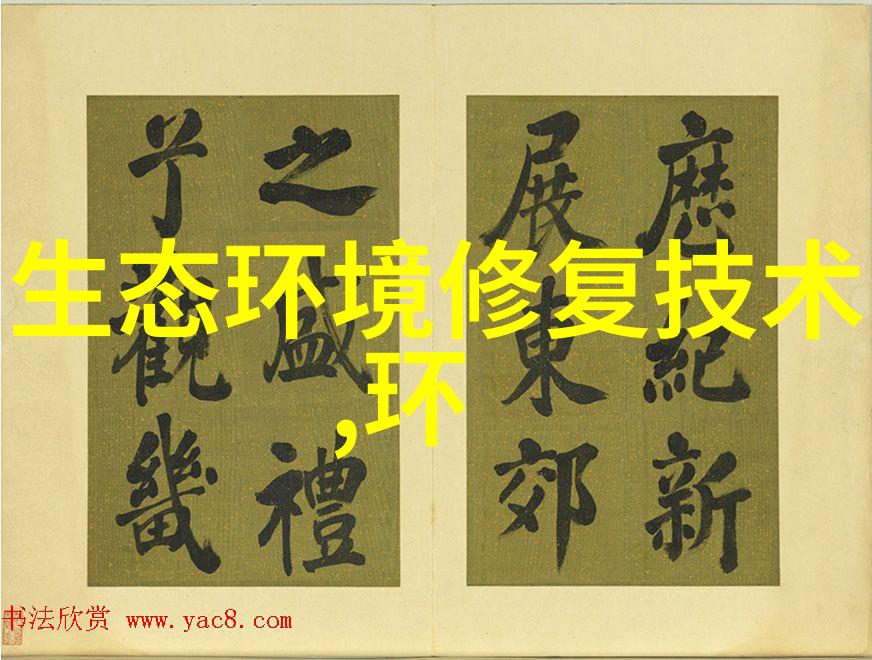 歷紀新
展東郊
之盛禮
觀畿
生态环境修复技术
,环
书法欣赏 www.yac8.com